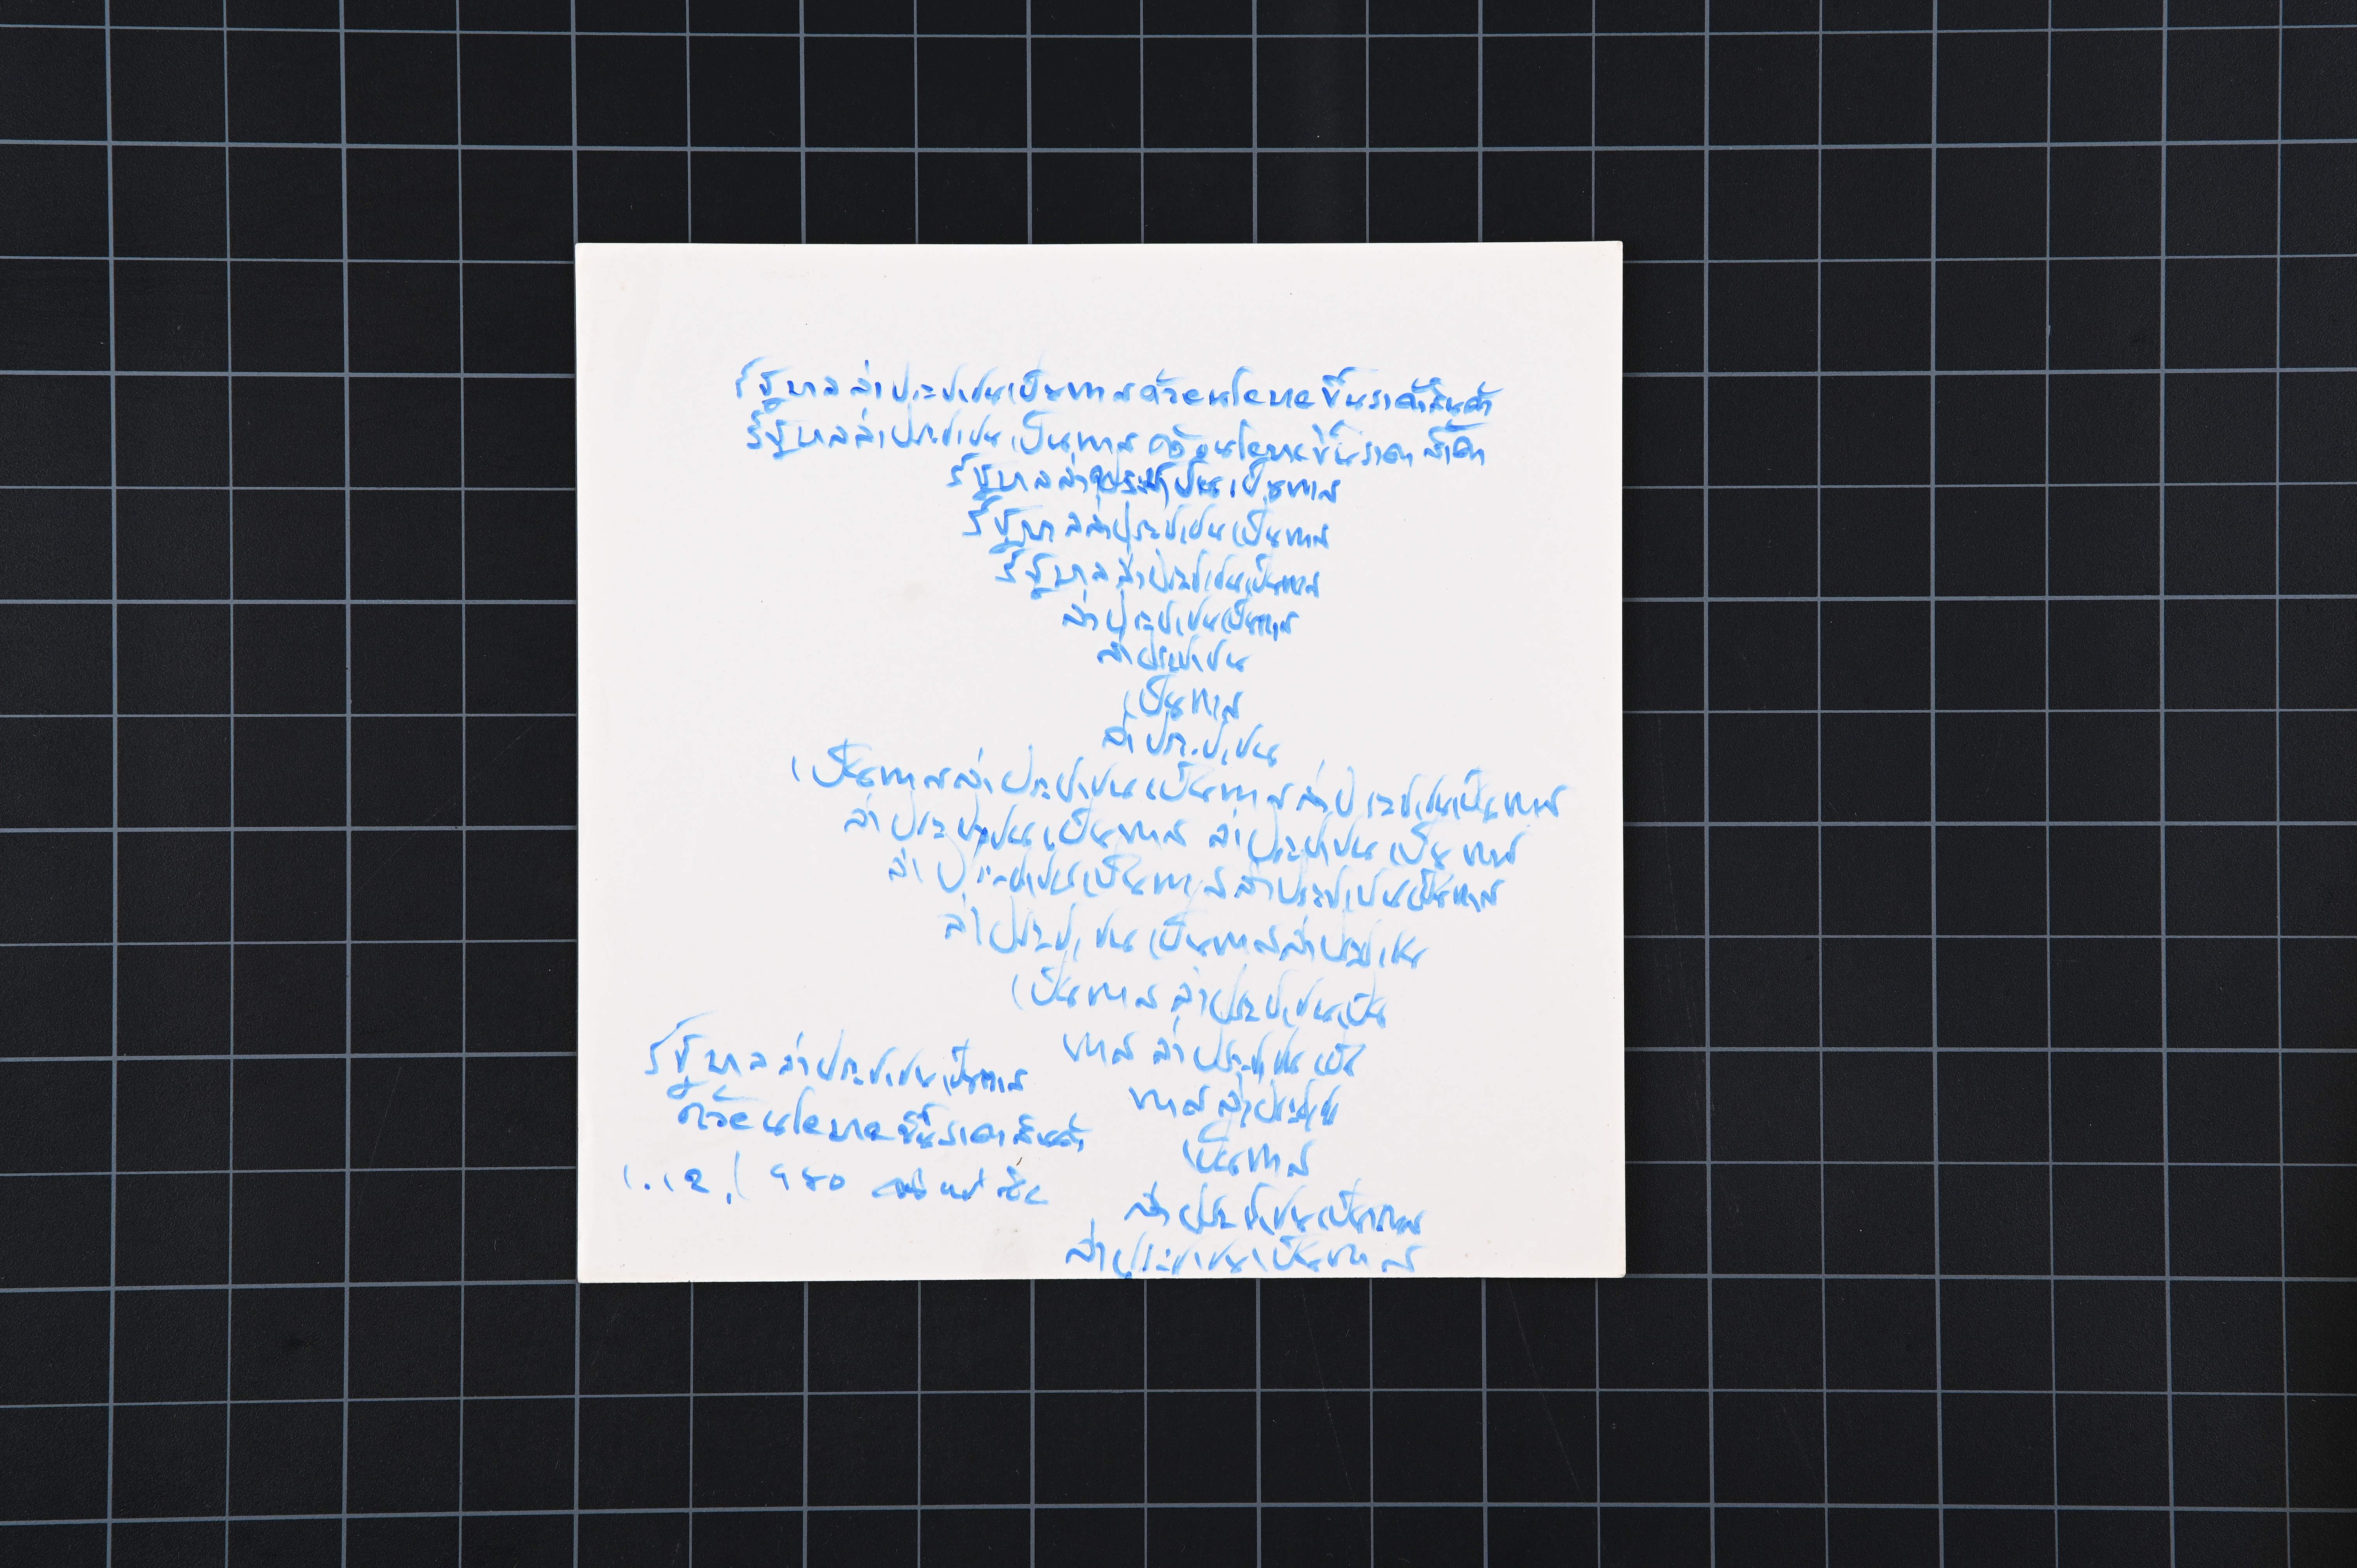 รัฐบาลล่าประชาชนเป็นทาสด้วยนโยบายขึ้นราคาสินค้า
รัฐบาลล่าประชาชนเป็นทาสด้วยนโยบายขึ้นราคา
รัฐบาลล่าประชาชนเป็นทาส
รัฐบาลล่าประชาชนเป็นทาส
รัฐบาลล่าประชาชนเป็นทาส
ล่าประชาชนเป็นทาส
ล่าประชาชน
เป็นทาส
ล่าประชาชน
เป็นทาสล่าประชาชนเป็นทาสล่าประชาชนเป็นทาส
ล่าประชาชนเป็นทาส ล่าประชาชนเป็นทาส
ล่าประชาชนเป็นทาสล่าประชาชนเป็นทาส
ล่าประชาชนเป็นทาสล่าประชาชน
เป็นทาสล่าประชาชนเป็น
ทาส ล่าประชาชนเป็น
ทาสล่าประชาช
เป็นทาส
ล่าประชาชนเป็นทาส
ล่าประชาชนเป็นทาส
รัฐบาลล่าประชาชนเป็นทาส
ด้วยนโยบายขึ้นราคาสินค้า